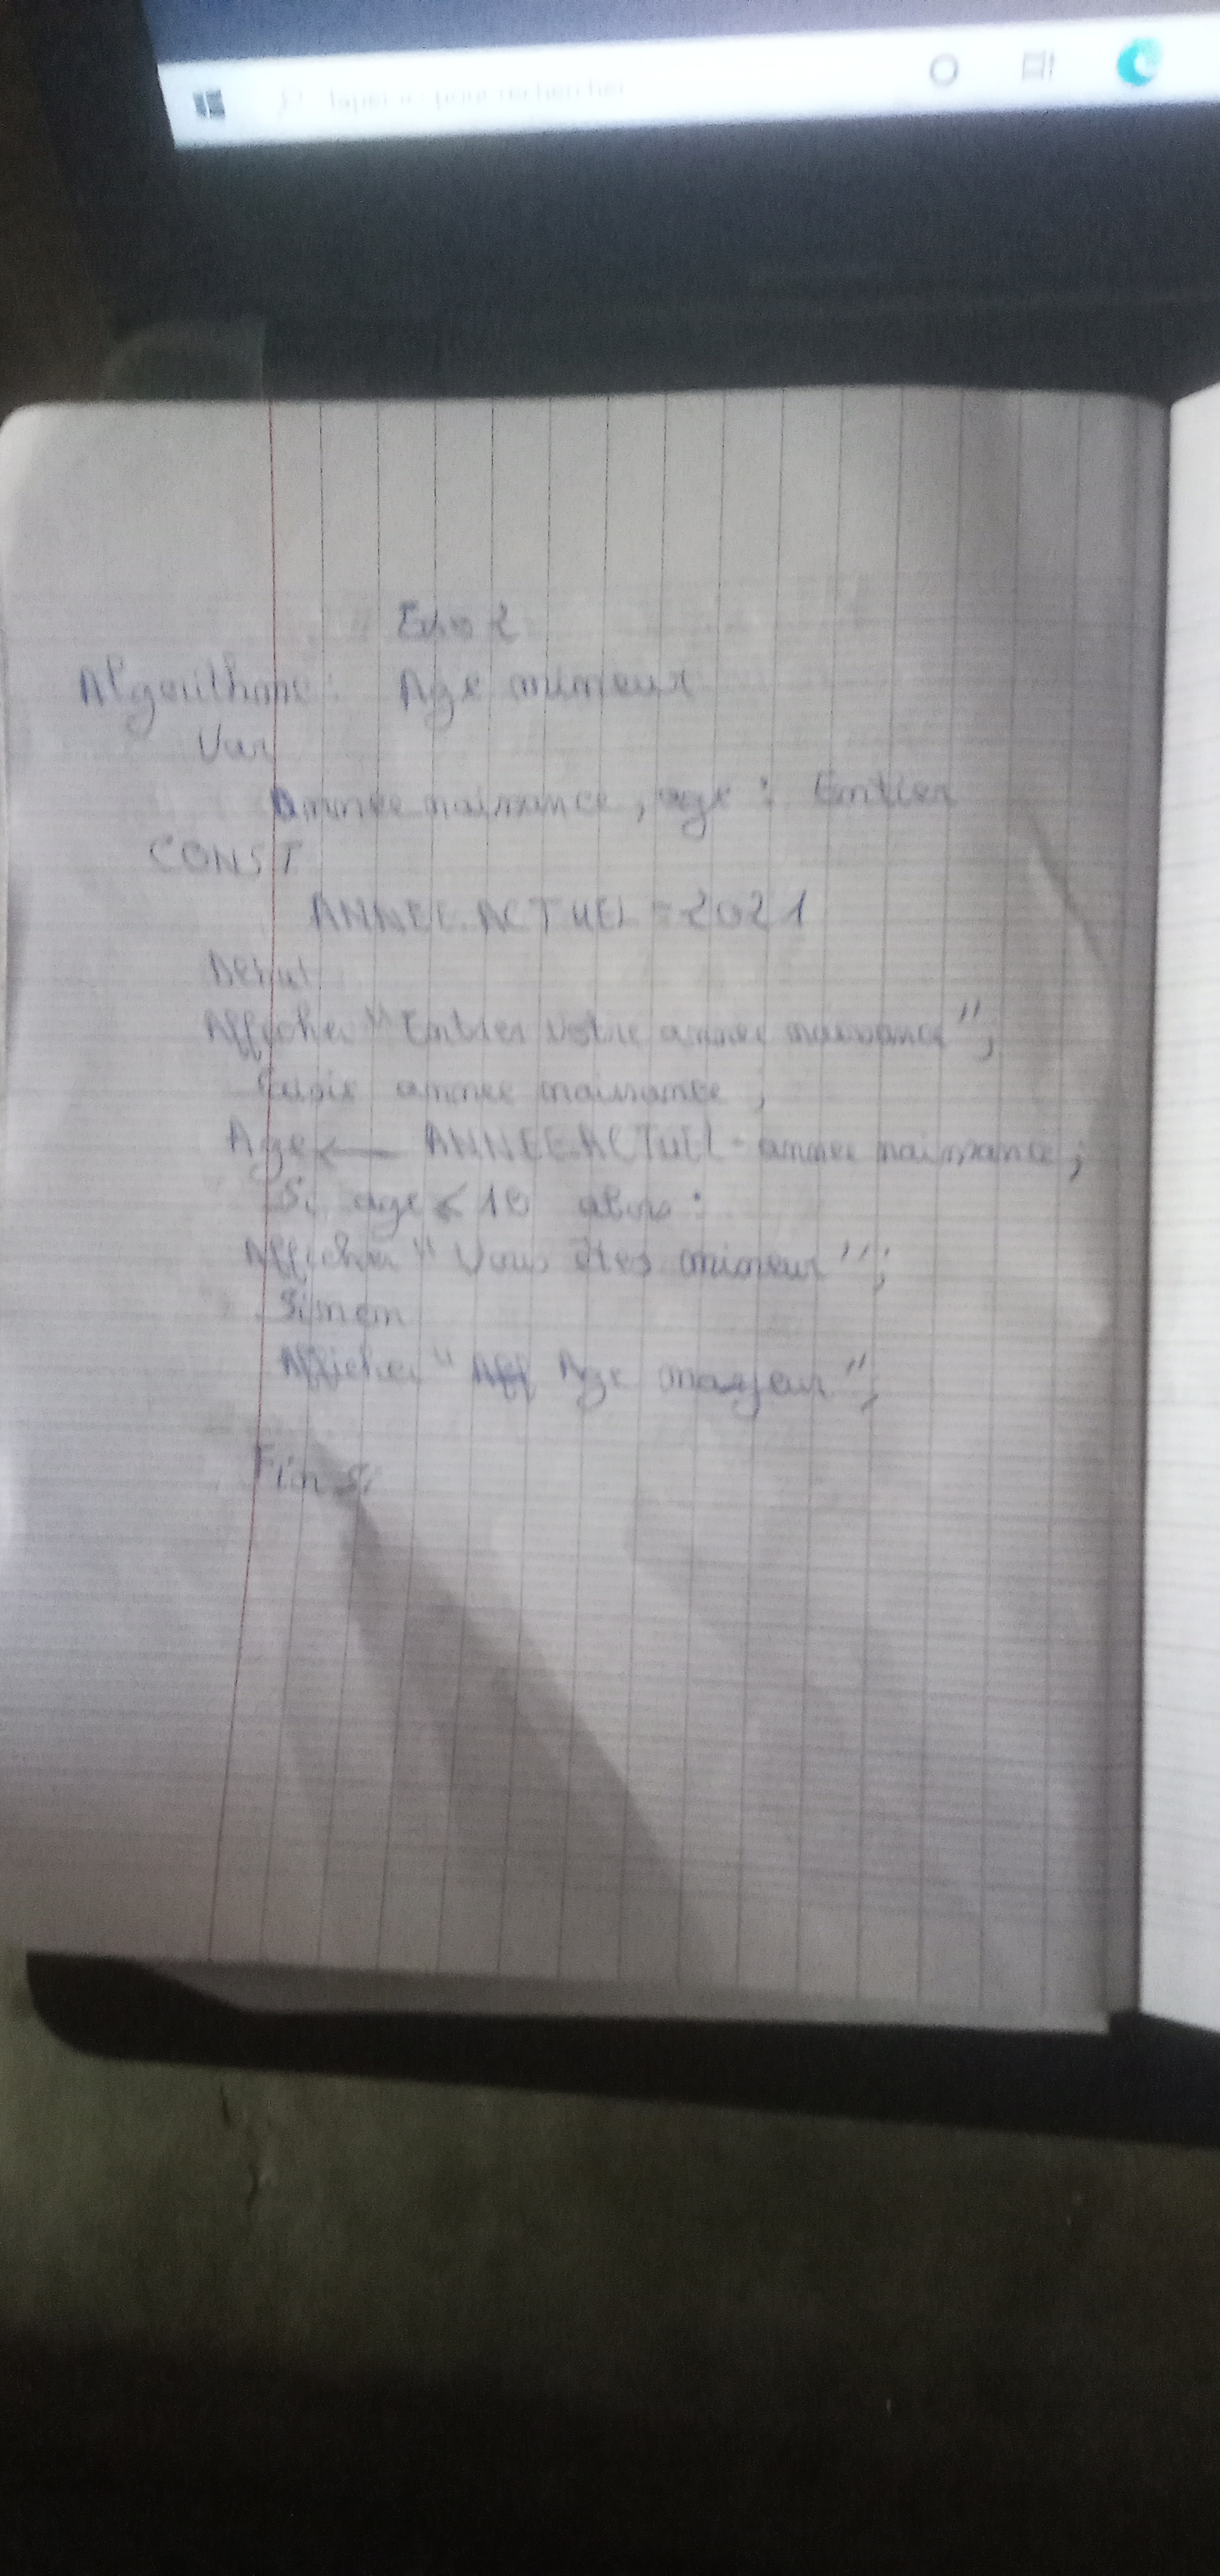 Taper ici pour rechercher
Exo 2
Algorithme : Age mineur
Var
Année naissance, age : Entier
CONST
ANNEE.ACTUEL = 2021
Debut
Afficher "Entrer votre année naissance";
année naissance,
Age ← ANNEE.ACTUEL - année naissance;
Si age < 18 alors :
Afficher "Vous êtes mineur";
Sinon
Afficher "Aff Age majeur";
Fin Si